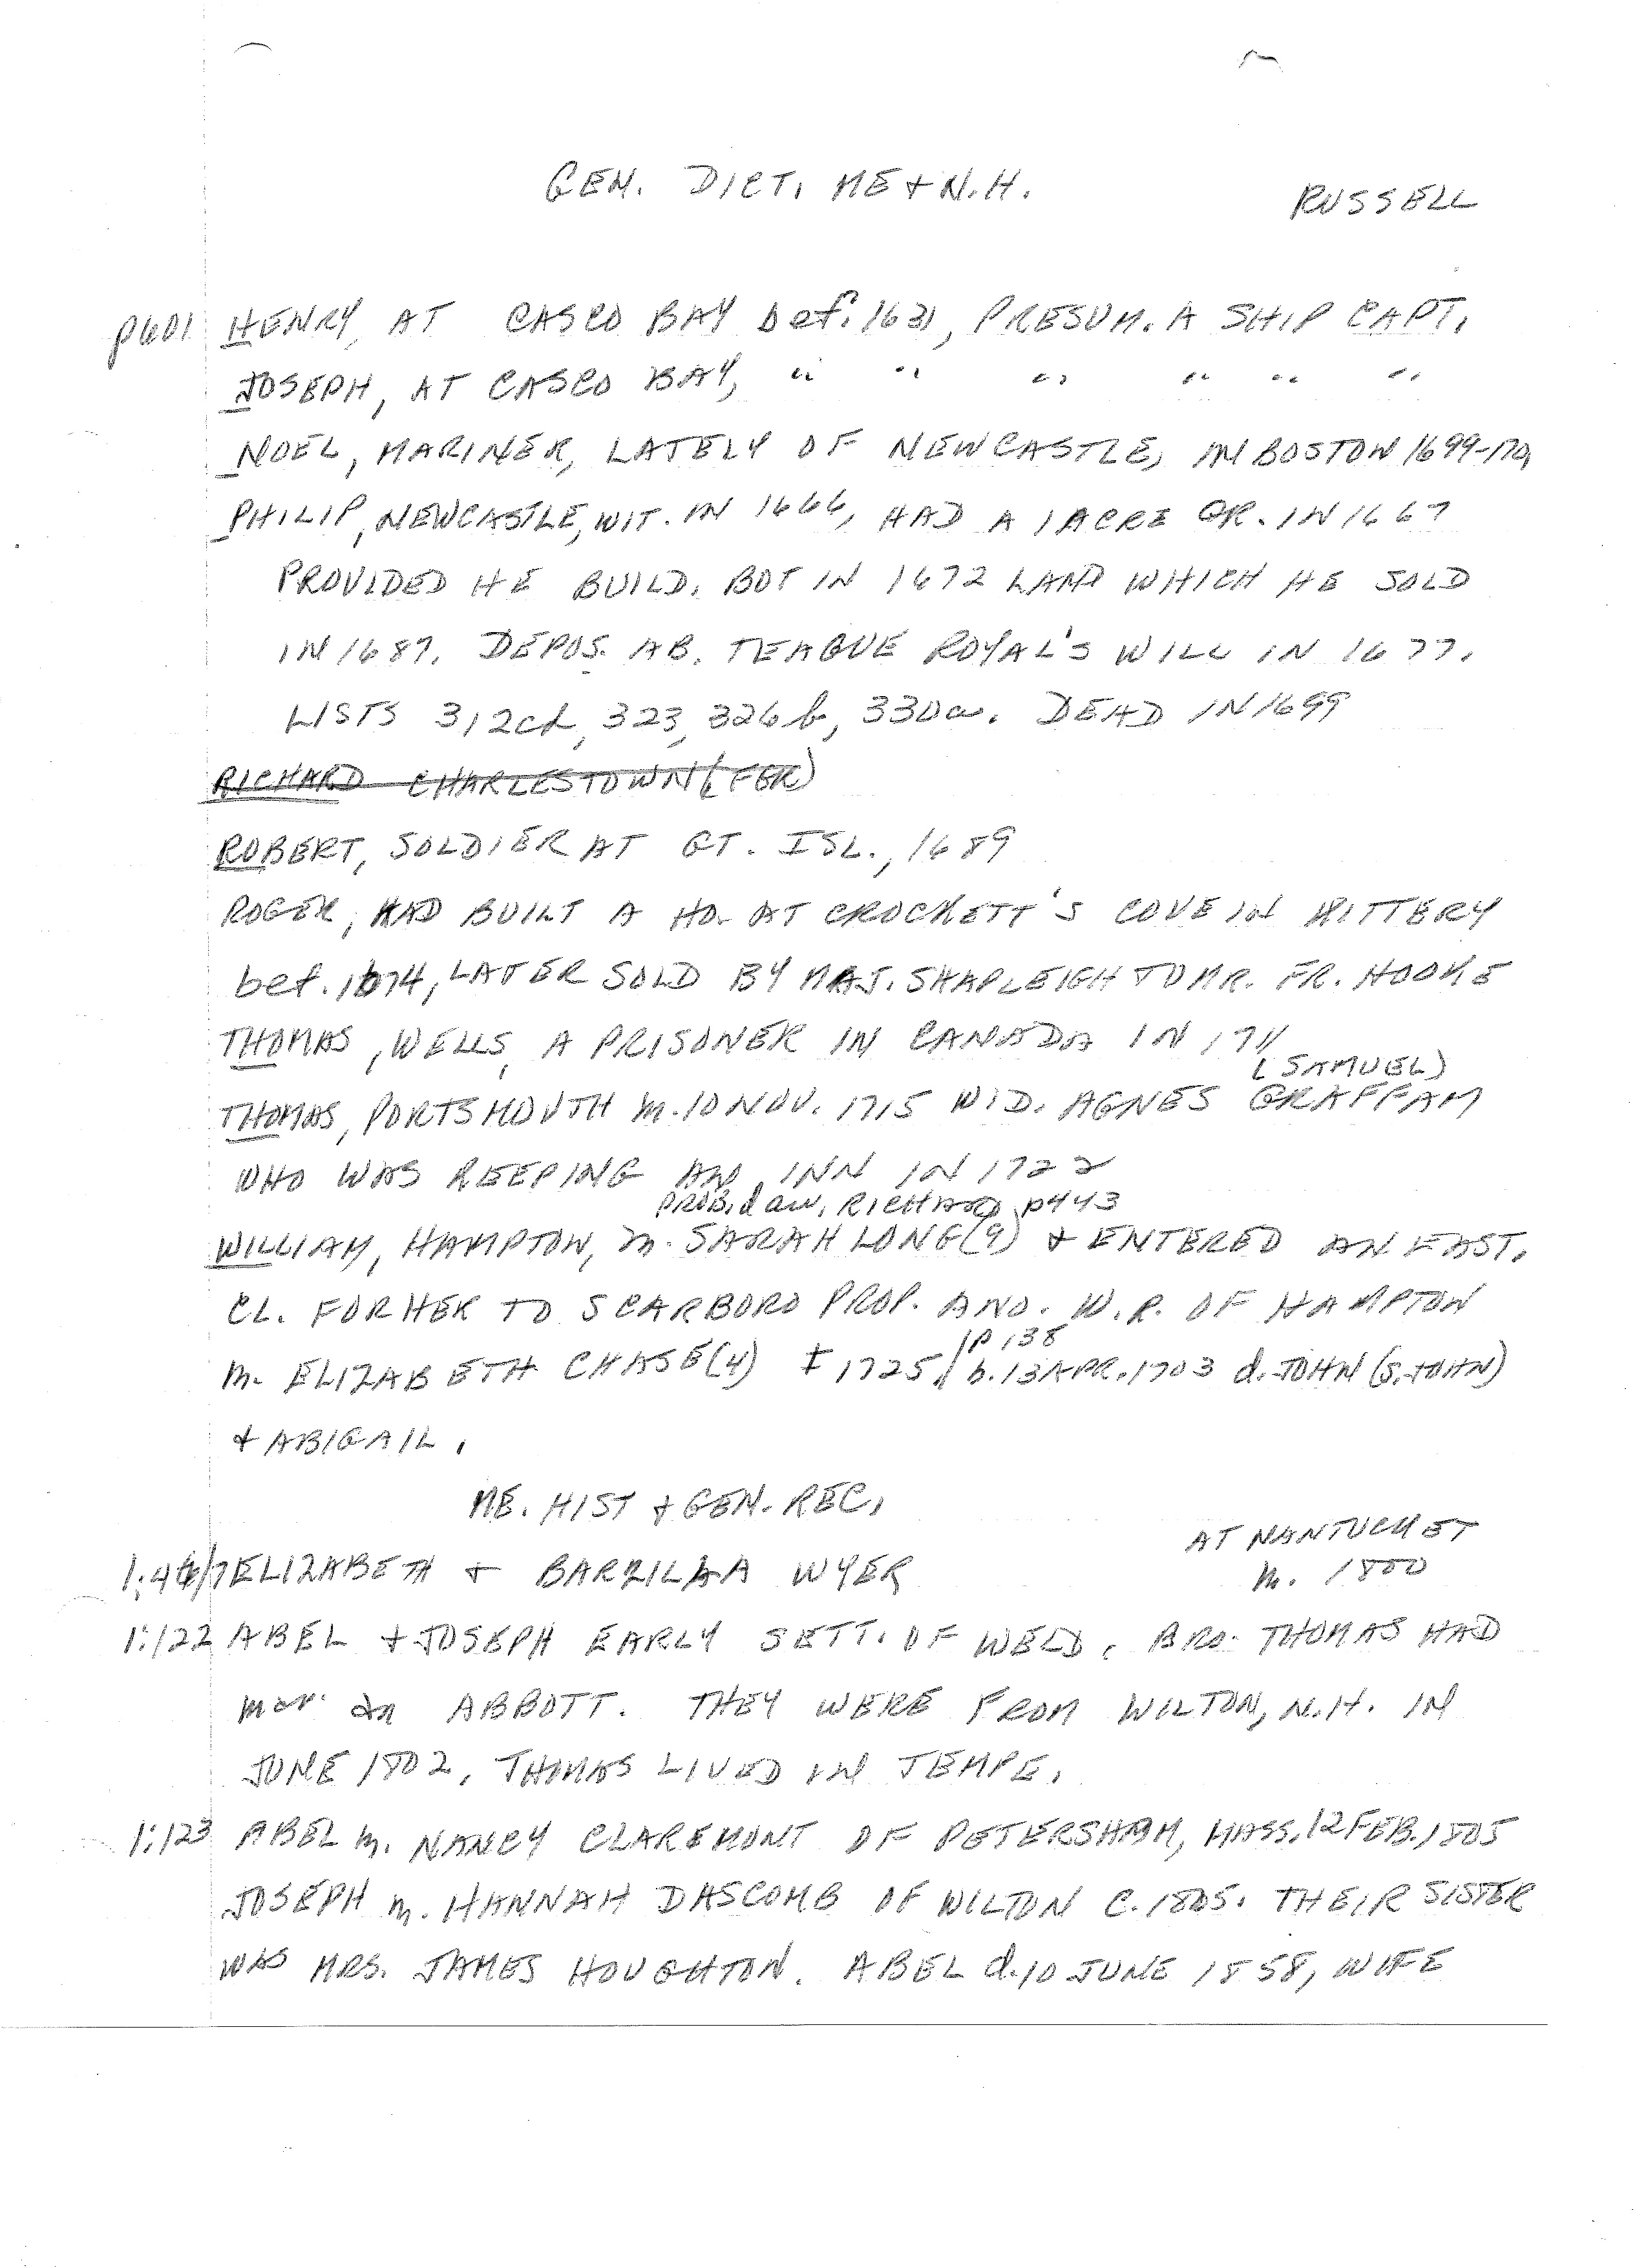 GEN. DICT. ME + N.H.
RUSSELL
p601 HENRY, AT CASCO BAY bef. 1631, PRESUM. A SHIP CAPT.
JOSEPH, AT CASCO BAY, " " " " " "
NOEL, MARINER, LATELY OF NEWCASTLE, IN BOSTON 1699-170
PHILIP, NEWCASTLE, WIT. IN 1666, HAD A 1 ACRE GR. IN 1667
PROVIDED HE BUILD. BOT IN 1672 LAND WHICH HE SOLD
IN 1687. DEPOS. AB. TEAGUE ROYAL'S WILL IN 1677.
LISTS 312cd, 323, 326b, 330a. DEAD IN 1699
RICHARD CHARLESTOWN (FGR)
ROBERT, SOLDIER AT GT. ISL., 1689
ROGER, HAD BUILT A HO. AT CROCKETT'S COVE IN KITTERY
bef. 1674, LATER SOLD BY MAJ. SHAPLEIGH TO MR. FR. HOOKE
THOMAS, WELLS, A PRISONER IN CANADA IN 1711
(SAMUEL)
THOMAS, PORTSMOUTH m. 10 NOV. 1715 WID. AGNES GRAFFAM
WHO WAS KEEPING AN INN IN 1722
PROB. dau. RICHARD p443
WILLIAM, HAMPTON, m. SARAH LONG (9) + ENTERED AN EAST.
CL. FOR HER TO SCARBORO PROP. ANO. W.R. OF HAMPTON
p 138
m. ELIZABETH CHASE (4) ‡ 1725 / b. 13 APR. 1703 d. JOHN (S. JOHN)
+ ABIGAIL.
ME. HIST + GEN. REC.
AT NANTUCKET
1:46/7 ELIZABETH + BARZILLA WYER m. 1800
1:122 ABEL + JOSEPH EARLY SETT. OF WELD. BRO. THOMAS HAD
mar. an ABBOTT. THEY WERE FROM WILTON, N.H. IN
JUNE 1802, THOMAS LIVED IN TEMPE.
1:123 ABEL m. NANCY CLAREMONT OF PETERSHAM, MASS. 12 FEB. 1805
JOSEPH m. HANNAH DASCOMB OF WILTON C. 1805. THEIR SISTER
WAS MRS. JAMES HOUGHTON. ABEL d. 10 JUNE 1858, WIFE